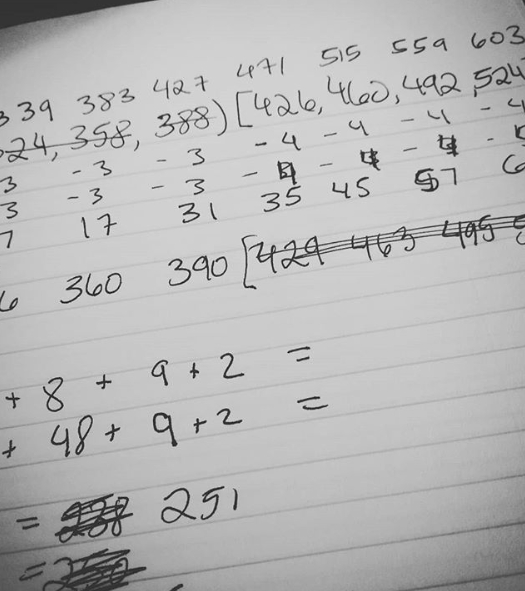 339 383 427 471 515 559 603
324, 358, 388) [426, 460, 492, 524
3 - 3 - 3 - 4 - 4 - 4 - 4
3 - 3 - 3 - 4 - 4 - 4 -
7 17 31 35 45 57 6
6 360 390 [429 463 495
+ 8 + 9 + 2 =
+ 48 + 9 + 2 =
= 251
=